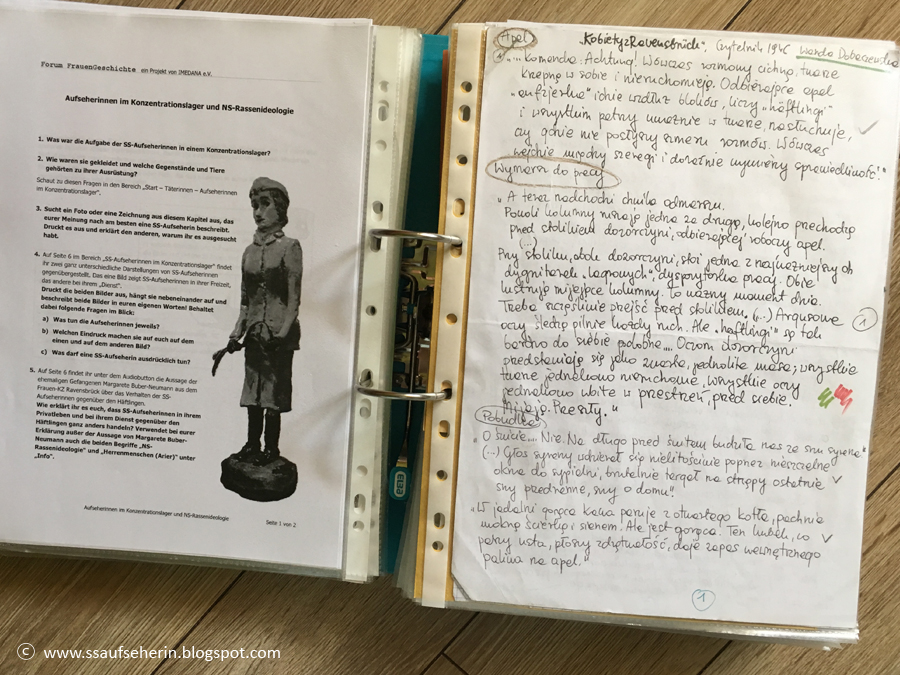 Forum FrauenGeschichte ein Projekt von IMEDANA e.V.
Aufseherinnen im Konzentrationslager und NS-Rassenideologie
1. Was war die Aufgabe der SS-Aufseherinnen in einem Konzentrationslager?
2. Wie waren sie gekleidet und welche Gegenstände und Tiere
gehörten zu ihrer Ausrüstung?
Schaut zu diesen Fragen in den Bereich „Start – Täterinnen – Aufseherinnen
im Konzentrationslager".
3. Sucht ein Foto oder eine Zeichnung aus diesem Kapitel aus, das
eurer Meinung nach am besten eine SS-Aufseherin beschreibt.
Druckt es aus und erklärt den anderen, warum ihr es ausgesucht
habt.
4. Auf Seite 6 im Bereich „SS-Aufseherinnen im Konzentrationslager" findet
ihr zwei ganz unterschiedliche Darstellungen von SS-Aufseherinnen
gegenübergestellt. Das eine Bild zeigt SS-Aufseherinnen in ihrer Freizeit,
das andere bei ihrem „Dienst".
Druckt die beiden Bilder aus, hängt sie nebeneinander auf und
beschreibt beide Bilder in euren eigenen Worten! Behaltet
dabei folgende Fragen im Blick:
a) Was tun die Aufseherinnen jeweils?
b) Welchen Eindruck machen sie auf euch auf dem
einen und auf dem anderen Bild?
c) Was darf eine SS-Aufseherin ausdrücklich tun?
5. Auf Seite 6 findet ihr unter dem Audiobutton die Aussage der
ehemaligen Gefangenen Margarete Buber-Neumann aus dem
Frauen-KZ Ravensbrück über das Verhalten der SS-
Aufseherinnen gegenüber den Häftlingen.
Wie erklärt ihr es euch, dass SS-Aufseherinnen in ihrem
Privatleben und bei ihrem Dienst gegenüber den
Häftlingen ganz anders handeln? Verwendet bei eurer
Erklärung außer der Aussage von Margarete Buber-
Neumann auch die beiden Begriffe „NS-
Rassenideologie" und „Herrenmenschen (Arier)" unter
„Info".
Aufseherinnen im Konzentrationslager und NS-Rassenideologie
Seite 1 von 2
Apel „Kobiety z Ravensbrück", Czytelnik 1946 Wanda Dobaczewska
„... Komenda: Achtung! Wówczas rozmowy cichną, twarze
krzepną w sobie i nieruchomieją. Odbierające apel
idzie wzdłuż bloków, liczy „häftlingi"
i wszystkim patrzy uważnie w twarze, nasłuchuje,
czy gdzie nie posłyszy szmeru rozmów. Wówczas
wejdzie między szeregi i doraźnie wymierzy sprawiedliwość."
Wymarsz do pracy
„A teraz nadchodzi chwila odmarszu.
Powoli kolumny ruszają jedna za drugą, kolejno przechodzą
przed stolikiem dozorczyni, odbierającej roboczy apel.
(...)
Przy stoliku, obok dozorczyni, stoi jedna z najważniejszych
dygnitarek „lagrowych", dyspozytorka pracy. Obie
lustrują mijające kolumny. To ważny moment dnia.
Trzeba szczęśliwie przejść przed stolikiem. (...) Argusowe
oczy śledzą pilnie każdy ruch. Ale „häftlingi" są tak
bardzo do siebie podobne... Oczom dozorczyni
przedstawiają się jako zwarta, jednolita masa; wszystkie
twarze jednakowo nieruchome, wszystkie oczy
jednakowo wbite w przestrzeń, przed siebie.
Mijają. Przeszły."
1
Pobudka
„O świcie... Nie. Na długo przed świtem budziła nas ze snu syrena"
(...) Głos syreny wdzierał się nielitościwie poprzez nieszczelne
okna do sypialni, brutalnie targał na strzępy ostatnie
sny przedranne, sny o domu".
„W jadalni gorąca kawa paruje z otwartego kotła, pachnie
mokrą ścierką i sianem. Ale jest gorąca. Ten kubek, co
parzy usta, płoszy zdrętwiałość, daje zapas wewnętrznego
paliwa na apel."
1
© www.ssaufseherin.blogspot.com